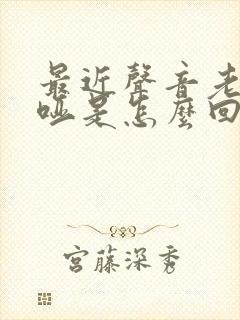 最近聲音老
啞是怎麼回
宮藤深秀